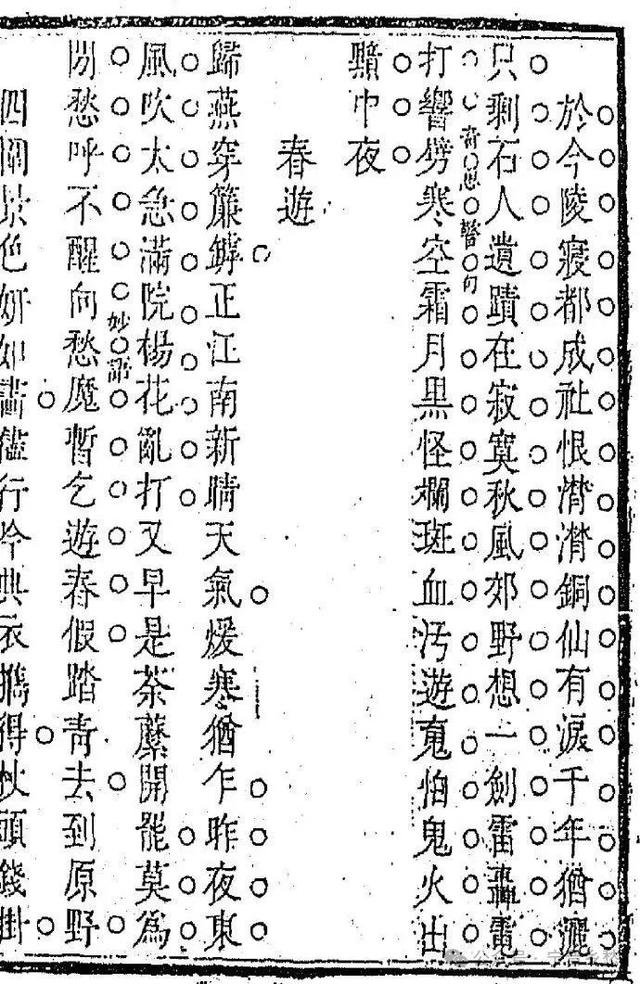 於今陵寢都成社恨潸潸銅仙有淚千年猶灑
只剩石人遺蹟在寂寞秋風郊野想一劍雷轟電
奇思警句
打響劈寒空霜月黑怪斕斑血汚遊䰟怕鬼火出
黯中夜
春遊
歸燕穿簾罅正江南新晴天氣煖寒猶乍昨夜東
風吹太急滿院楊花亂打又早是荼蘼開罷莫爲
妙語
閒愁呼不醒向愁魔暫乞遊春假踏青去到原野
四圍景色妍如畫儘行吟典衣攜得杖頭錢掛